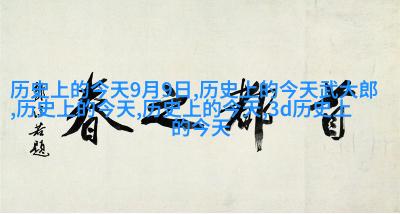 历史上的今天9月9日,历史上的今天武大郎
,历史上的今天,历史上的今天,3d历史上
的今天
首都之春
郭沫若题